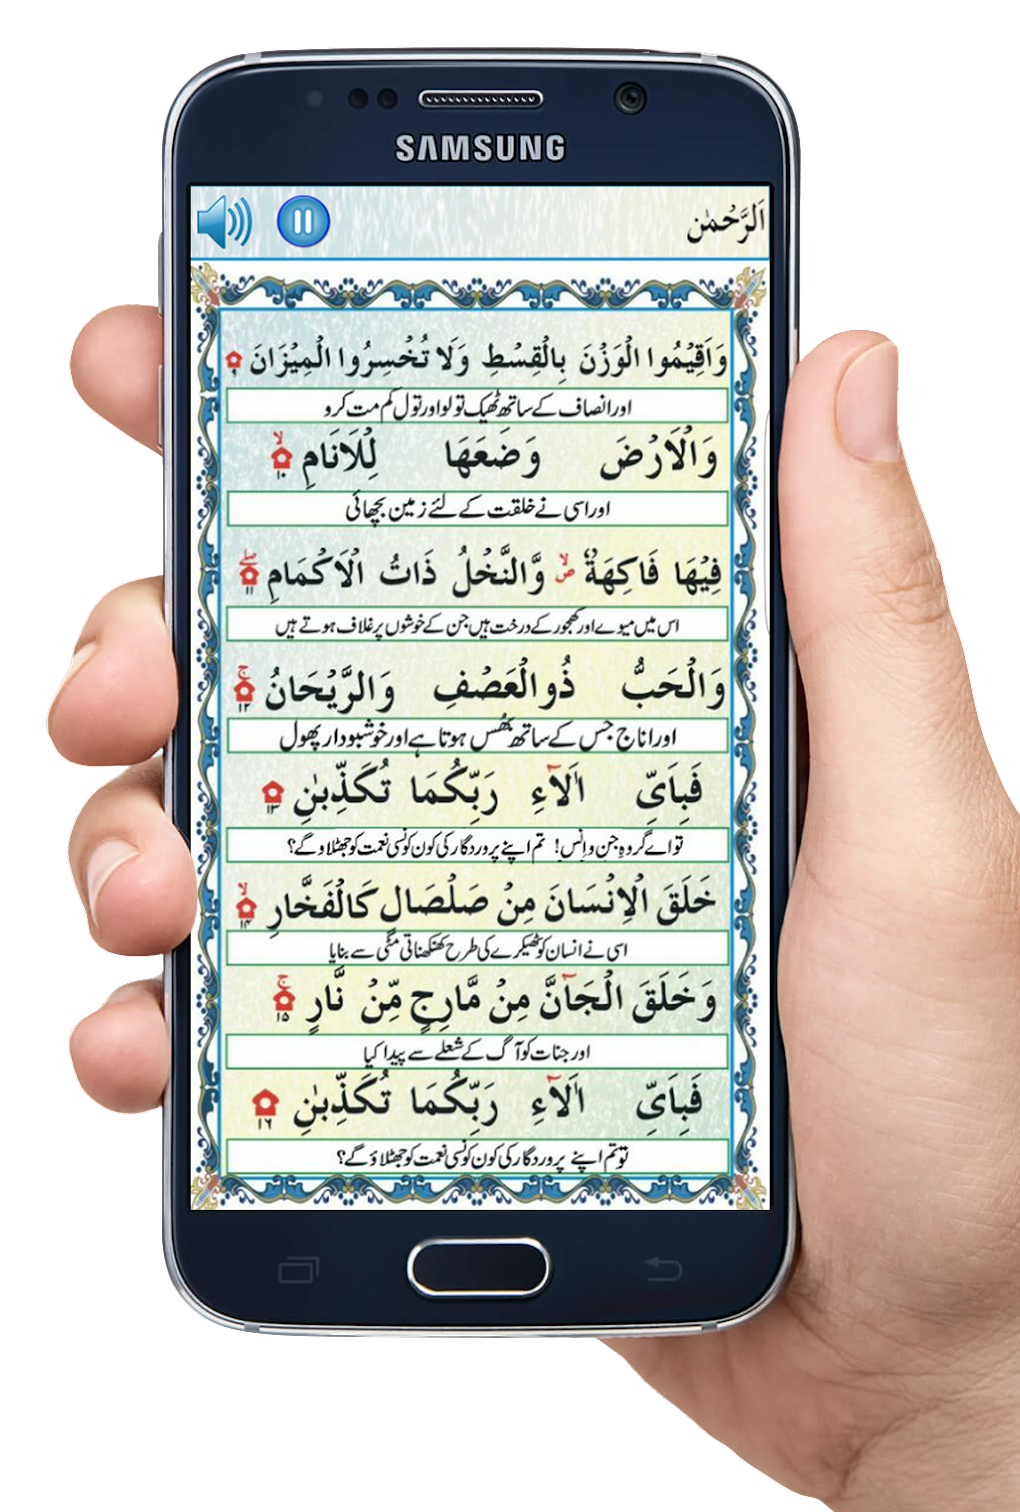 SAMSUNG
اَلرَّحْمٰن
وَاَقِيْمُوا الْوَزْنَ بِالْقِسْطِ وَلَا تُخْسِرُوا الْمِيْزَانَ ۹
اور انصاف کے ساتھ ٹھیک تولو اور تول کم مت کرو
وَالْاَرْضَ وَضَعَهَا لِلْاَنَامِ ۙ ۱۰
اور اسی نے خلقت کے لئے زمین بچھائی
فِيْهَا فَاكِهَةٌ ۙ ص وَّالنَّخْلُ ذَاتُ الْاَكْمَامِ ۖ ۱۱
اس میں میوے اور کھجور کے درخت ہیں جن کے خوشوں پر غلاف ہوتے ہیں
وَالْحَبُّ ذُو الْعَصْفِ وَالرَّيْحَانُ ۚ ۱۲
اور اناج جس کے ساتھ بھُس ہوتا ہے اور خوشبودار پھول
فَبِاَيِّ اٰلَآءِ رَبِّكُمَا تُكَذِّبٰنِ ۱۳
تو اے گروہِ جن و انس! تم اپنے پروردگار کی کون کونسی نعمت کو جھٹلاوگے؟
خَلَقَ الْاِنْسَانَ مِنْ صَلْصَالٍ كَالْفَخَّارِ ۙ ۱۴
اسی نے انسان کو ٹھیکرے کی طرح کھنکھناتی مٹی سے بنایا
وَخَلَقَ الْجَآنَّ مِنْ مَّارِجٍ مِّنْ نَّارٍ ۚ ۱۵
اور جنات کو آگ کے شعلے سے پیدا کیا
فَبِاَيِّ اٰلَآءِ رَبِّكُمَا تُكَذِّبٰنِ ۱۶
تو تم اپنے پروردگار کی کون کونسی نعمت کو جھٹلاؤ گے؟